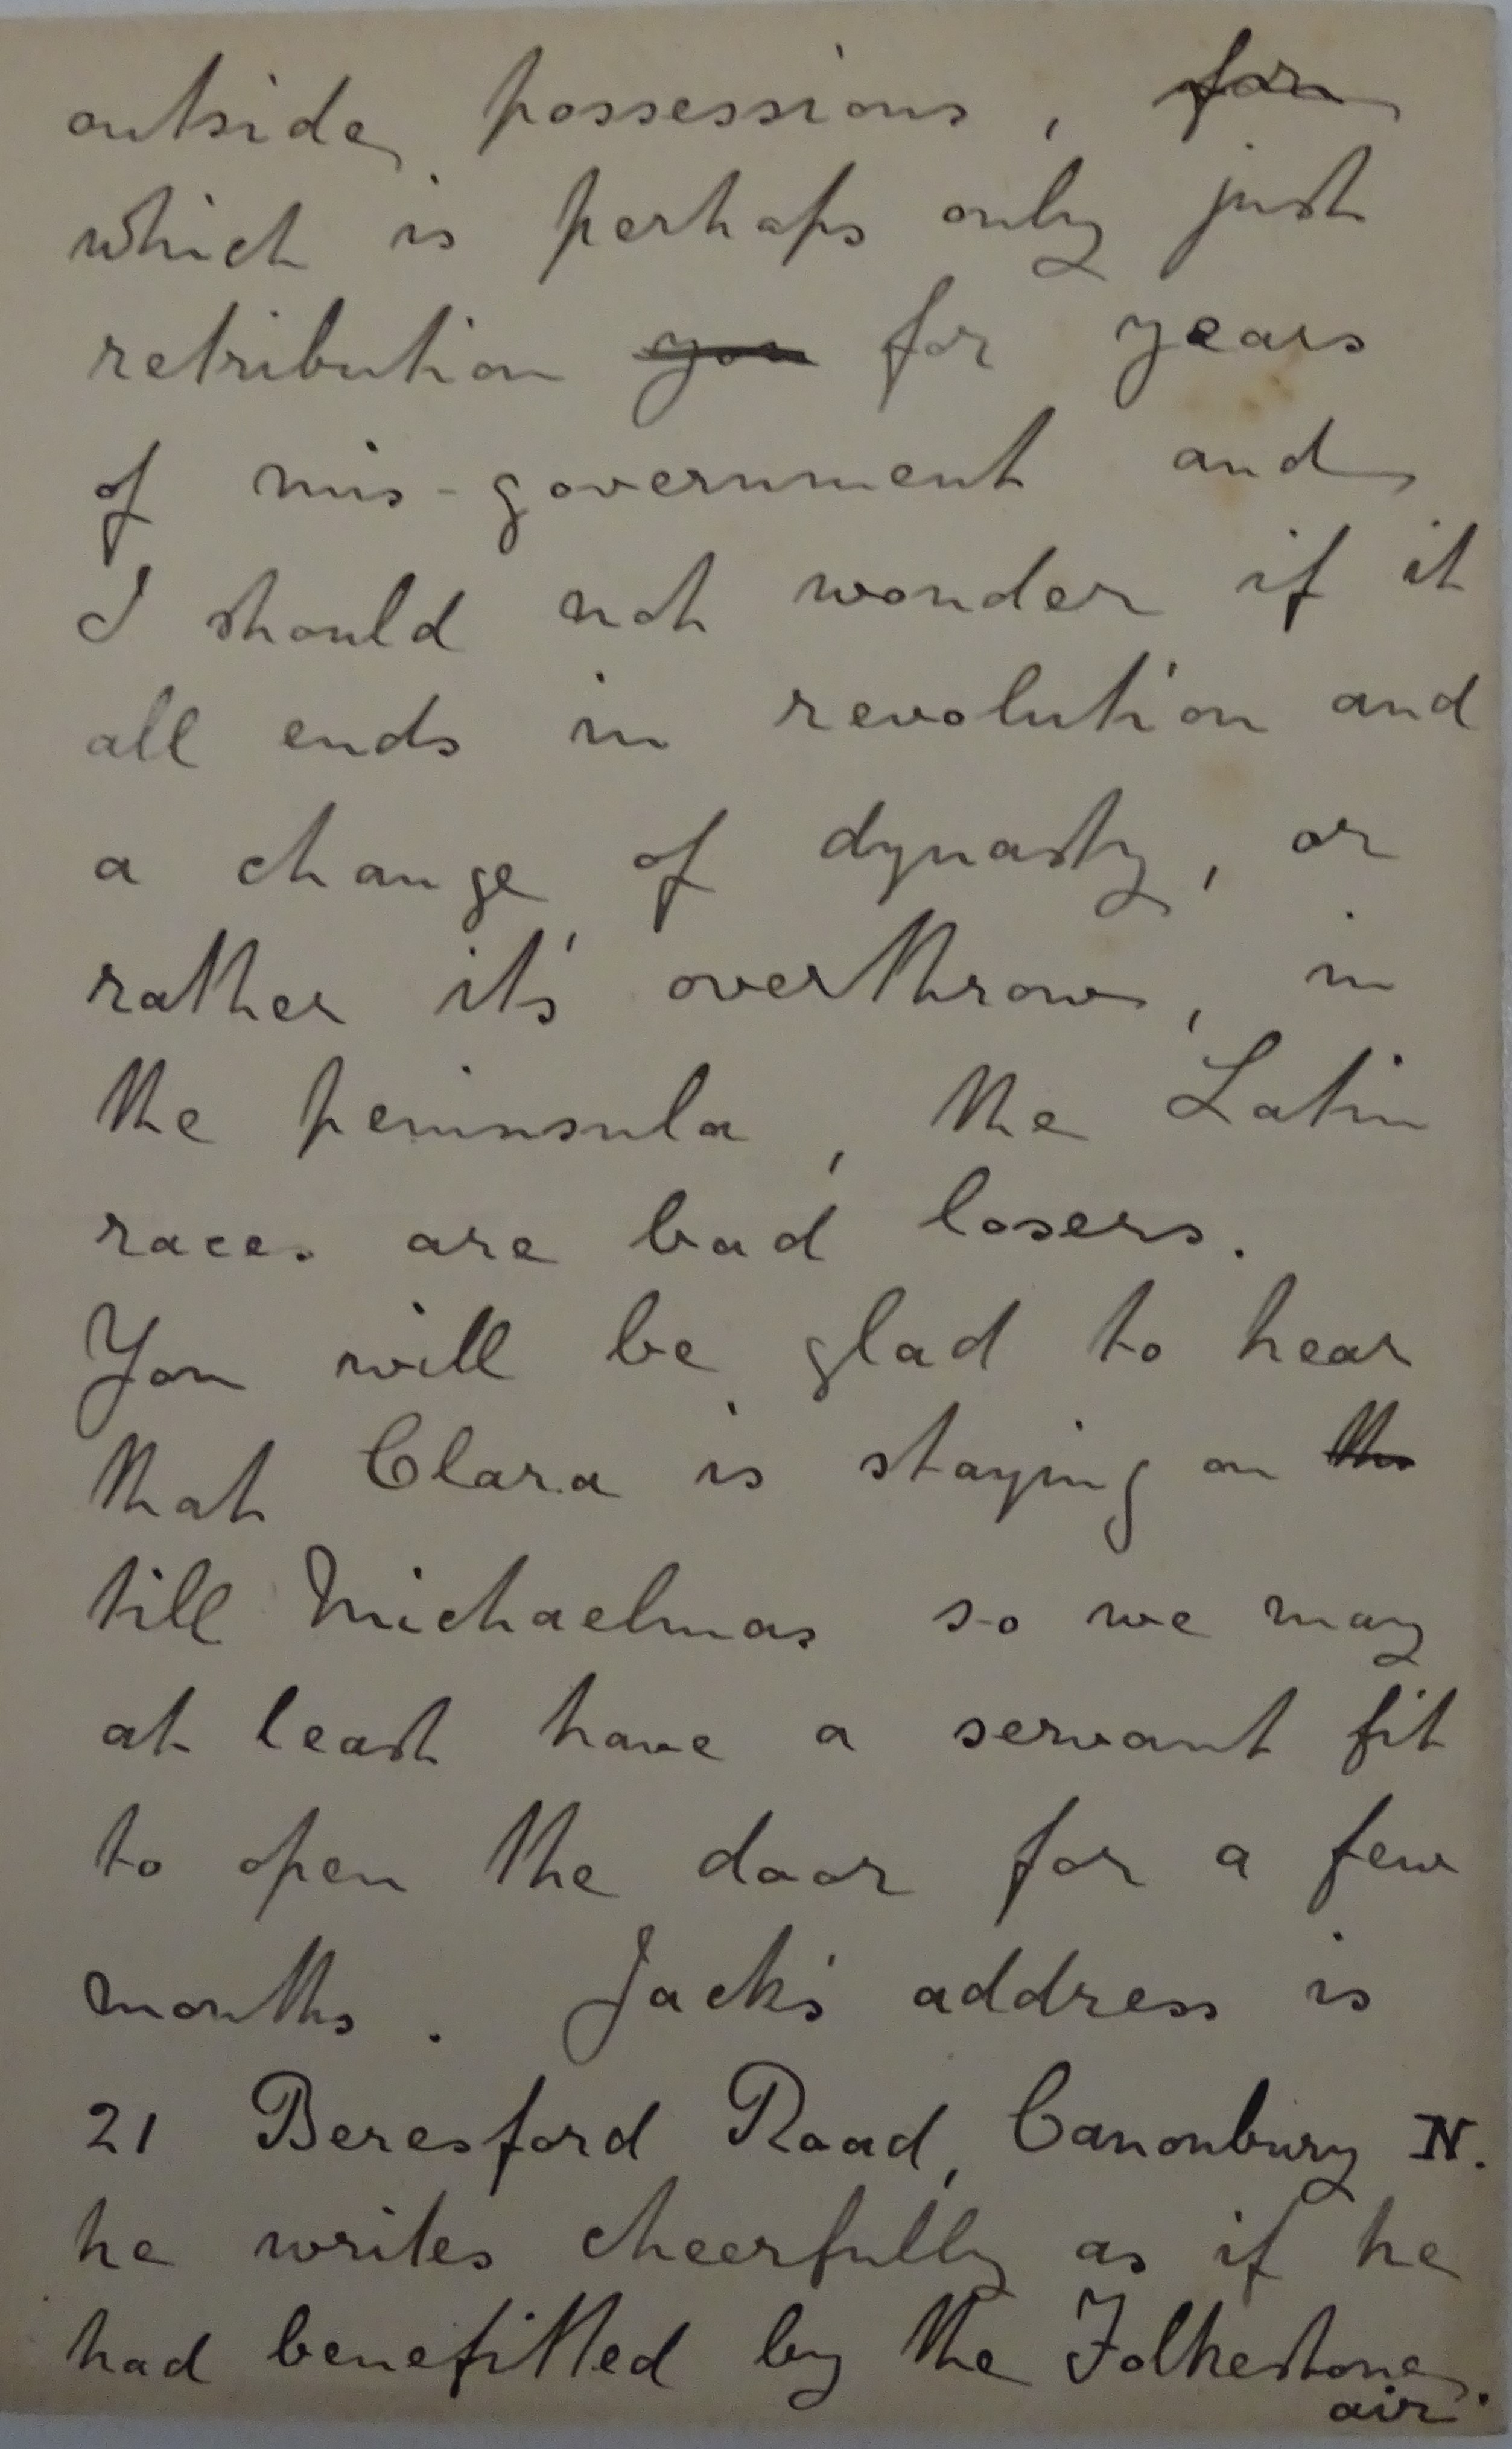 outside possessions, for
which is perhaps only just
retribution you for years
of mis-government and
I should not wonder if it
all ends in revolution and
a change of dynasty, or
rather it's overthrow, in
the peninsula, the Latin
races are bad losers.
You will be glad to hear
that Clara is staying on the
till Michaelmas so we may
at least have a servant fit
to open the door for a few
months. Jack's address is
21 Beresford Road, Canonbury N.
he writes cheerfully as if he
had benefitted by the Folkestone
air.